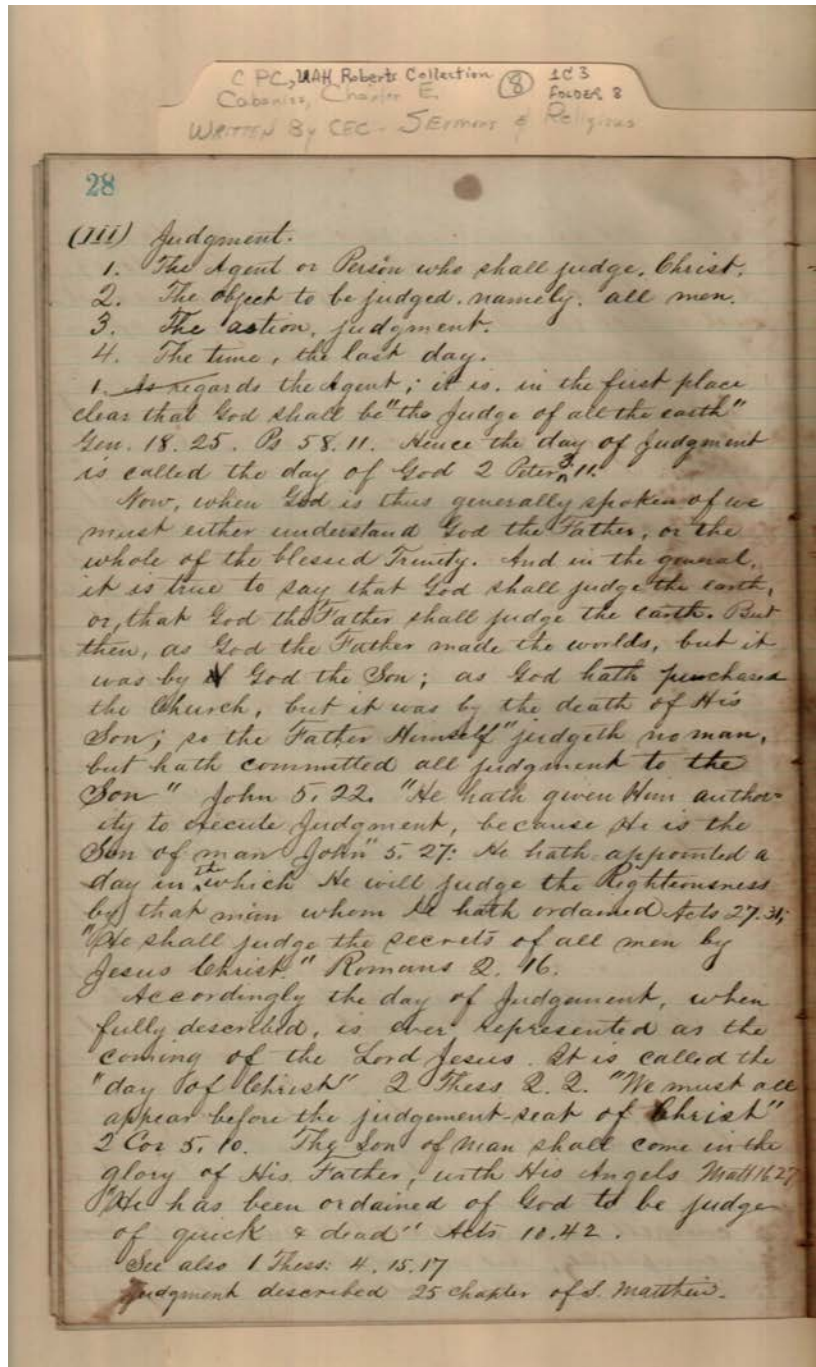 C PC, UAH Roberts Collection (8) 1C3
Cabaniss, Charles E. FOLDER 8
WRITTEN By CEC - SErmons & Religious
28
(III) Judgment.
1. The Agent or Person who shall judge, Christ.
2. The object to be judged, namely, all men.
3. The action, judgment.
4. The time, the last day.
1. As regards the Agent; it is, in the first place
clear that God shall be "the Judge of all the earth"
Gen. 18.25. Ps 58.11. Hence the day of judgment
is called the day of God 2 Peter 3. 11.
Now, when God is thus generally spoken of we
must either understand God the Father, or the
whole of the blessed Trinity. And in the general,
it is true to say that God shall judge the earth,
or, that God the Father shall judge the earth. But
then, as God the Father made the worlds, but it
was by God the Son; as God hath purchased
the Church, but it was by the death of His
Son; so the Father Himself "judgeth no man,
but hath committed all judgment to the
Son" John 5. 22. "He hath given Him author-
ity to execute Judgment, because He is the
Son of man John" 5. 27: He hath appointed a
day in the which He will judge the Righteousness
by that man whom he hath ordained Acts 27.31;
"He shall judge the secrets of all men by
Jesus Christ." Romans 2. 16.
Accordingly the day of Judgement, when
fully described, is ever represented as the
coming of the Lord Jesus. It is called the
"day of Christ" 2 Thess 2. 2. "We must all
appear before the judgement-seat of Christ"
2 Cor 5. 10. The Son of Man shall come in the
glory of His Father, with His Angels Matt 16 27
"He has been ordained of God to be judge
of quick & dead" Acts 10.42.
See also 1 Thess: 4. 15.17
Judgment described 25 chapter of S. Matthew.